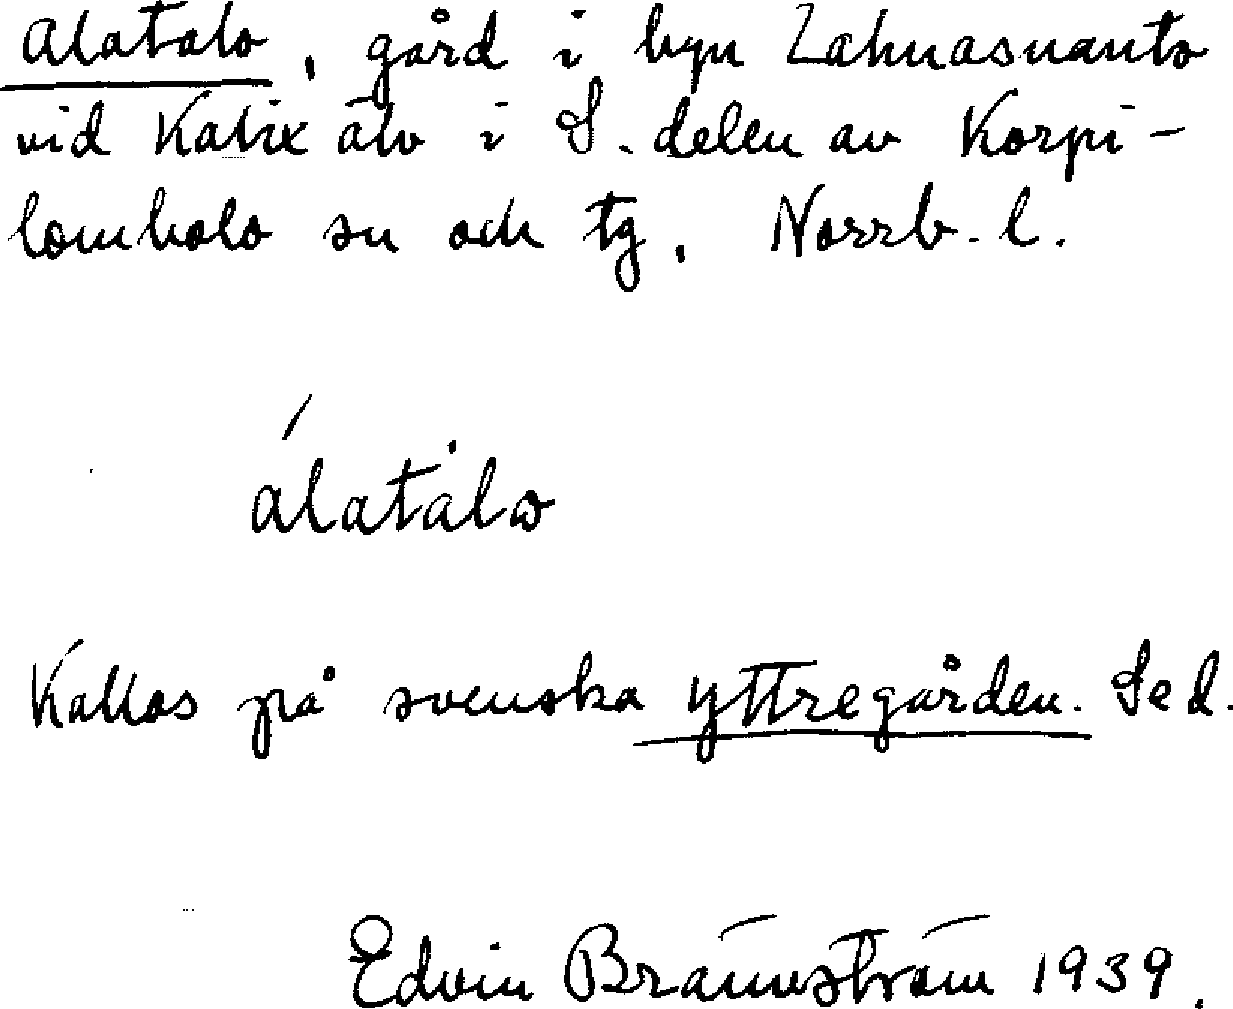 Alatalo, gård i byn Lahnasuanto
vid Kalix älv i S. delen av Korpi-
lombolo sn och tg, Norrb. l.
álatàlω
Kallas på svenska yttregården. Se d.
Edvin Brännström 1939.